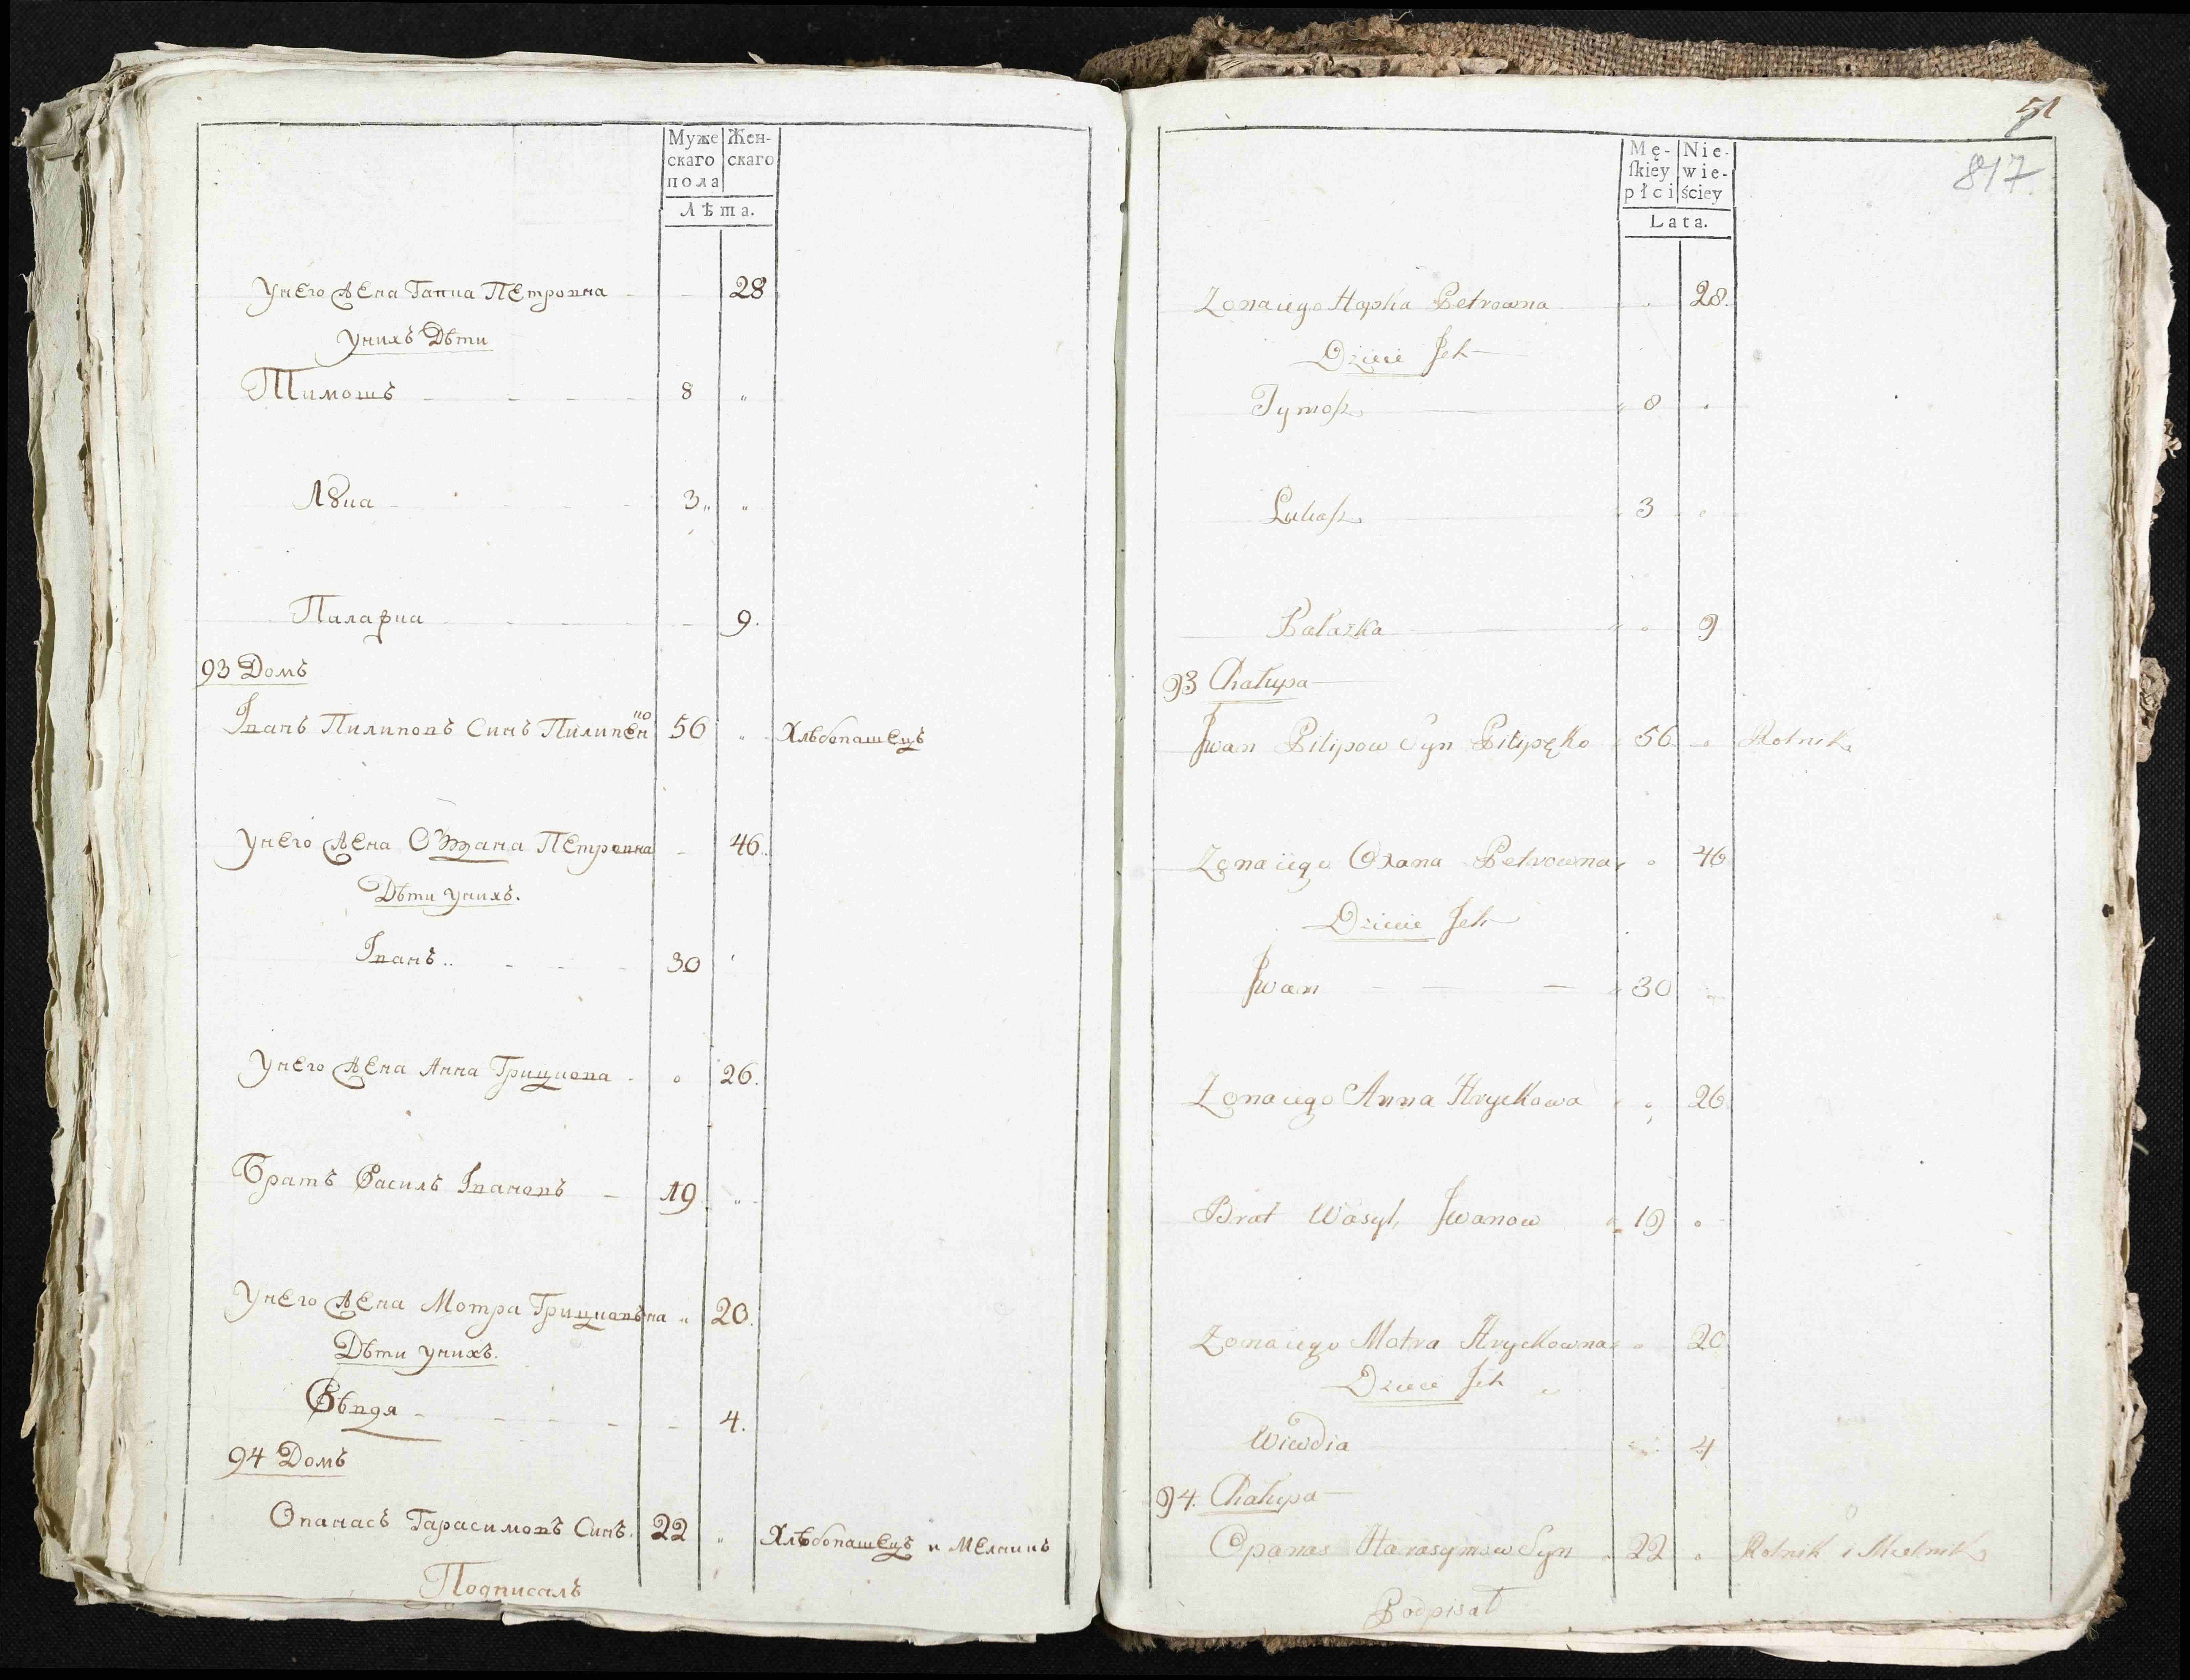 Муже Жен-
скаго скаго
пола
Лѣта.
Унего Жена Гапка Петровна 28
Унихъ Дѣти
Тимошъ 8 "
Лука 3 "
Палажка 9.
93 Домъ
Іванъ Пилиповъ Синъ Пилипенко 56 " Хлѣбопашецъ
Унего Жена Оѯана Петровна 46.
Дѣти унихъ.
Іванъ 30
Унего Жена Анна Грицкова 26.
Братъ Василь Івановъ 19 "
Унего Жена Мотра Грицковъна " 20.
Дѣти унихъ.
Вѣвдя 4.
94 Домъ
Опанасъ Гарасимовъ Синъ. 22 " Хлѣбопашецъ и Мелникъ
Подписалъ
51
817
Mę- Nie-
ſkiey wie-
płci ściey
Lata.
Zona iego Hapka Petrowna 28.
Dzieci Jch
Tymosz 8
Lukasz 3
Palażka 9
93 Chałupa
Jwan Pilipow Syn Pilipęko 56 Rolnik
Zona iego Oxana Petrowna 46
Dzieci Jch
Jwan 30
Zona iego Anna Hryckowa 26
Brat Wasyl Jwanow 19
Zona iego Motra Hryckowna 20
Dzieci Jch
Wiwdia 4
94. Chałupa
Opanas Harasymow Syn 22 Rolnik i Mielnik
Podpisał